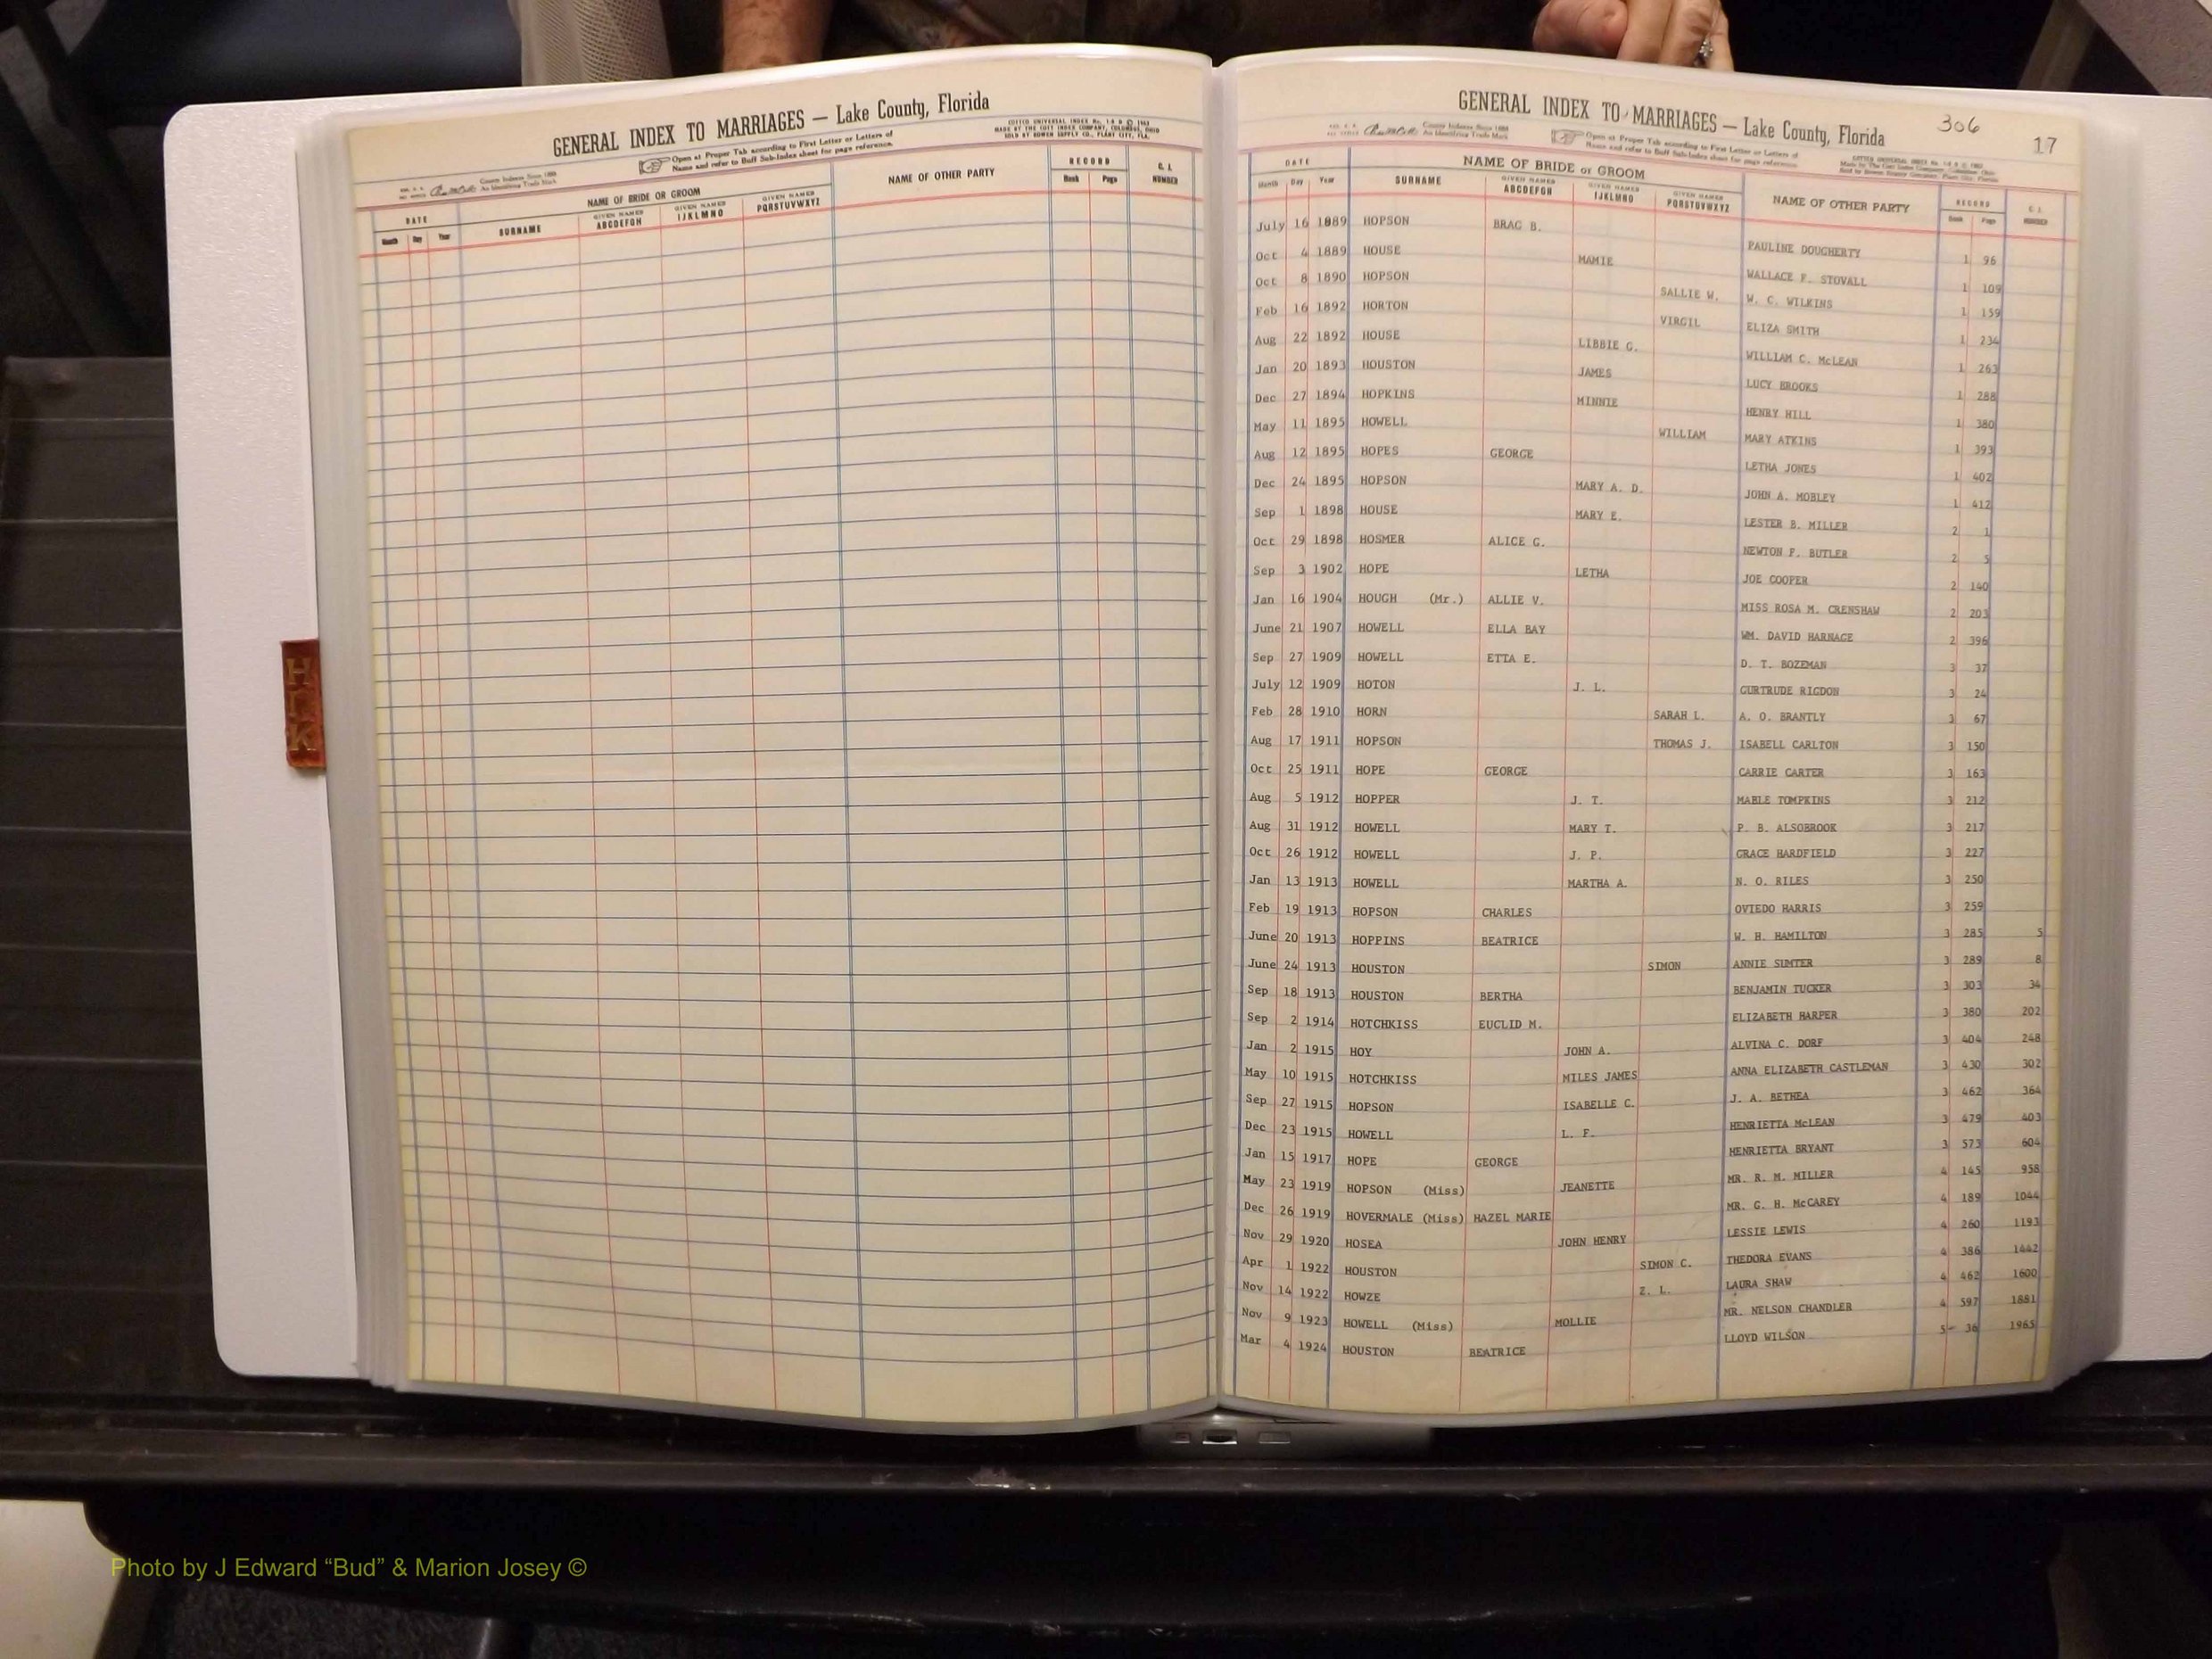 GENERAL INDEX TO MARRIAGES — Lake County, Florida
Open at Proper Tab according to First Letter or Letters of
Name and refer to Buff Sub-Index sheet for page reference.
DATE NAME OF BRIDE OR GROOM NAME OF OTHER PARTY RECORD C. I. NUMBER
Month Day Year SURNAME GIVEN NAMES ABCDEFGH GIVEN NAMES IJKLMNO GIVEN NAMES PQRSTUVWXYZ Book Page
H
K
GENERAL INDEX TO MARRIAGES — Lake County, Florida
306
17
Open at Proper Tab according to First Letter or Letters of
Name and refer to Buff Sub-Index sheet for page reference.
DATE NAME OF BRIDE or GROOM NAME OF OTHER PARTY RECORD C. I. NUMBER
Month Day Year SURNAME GIVEN NAMES ABCDEFGH GIVEN NAMES IJKLMNO GIVEN NAMES PQRSTUVWXYZ Book Page
July 16 1889 HOPSON BRAG B. PAULINE DOUGHERTY 1 96
Oct 4 1889 HOUSE MAMIE WALLACE F. STOVALL 1 109
Oct 8 1890 HOPSON SALLIE W. W. C. WILKINS 1 159
Feb 16 1892 HORTON VIRGIL ELIZA SMITH 1 234
Aug 22 1892 HOUSE LIBBIE G. WILLIAM C. McLEAN 1 263
Jan 20 1893 HOUSTON JAMES LUCY BROOKS 1 288
Dec 27 1894 HOPKINS MINNIE HENRY HILL 1 380
May 11 1895 HOWELL WILLIAM MARY ATKINS 1 393
Aug 12 1895 HOPES GEORGE LETHA JONES 1 402
Dec 24 1895 HOPSON MARY A. D. JOHN A. MOBLEY 1 412
Sep 1 1898 HOUSE MARY E. LESTER B. MILLER 2 1
Oct 29 1898 HOSMER ALICE G. NEWTON F. BUTLER 2 5
Sep 3 1902 HOPE LETHA JOE COOPER 2 140
Jan 16 1904 HOUGH (Mr.) ALLIE V. MISS ROSA M. CRENSHAW 2 203
June 21 1907 HOWELL ELLA BAY WM. DAVID HARNAGE 2 396
Sep 27 1909 HOWELL ETTA E. D. T. BOZEMAN 3 37
July 12 1909 HOTON J. L. GURTRUDE RIGDON 3 24
Feb 28 1910 HORN SARAH L. A. O. BRANTLY 3 67
Aug 17 1911 HOPSON THOMAS J. ISABELL CARLTON 3 150
Oct 25 1911 HOPE GEORGE CARRIE CARTER 3 163
Aug 5 1912 HOPPER J. T. MABLE TOMPKINS 3 212
Aug 31 1912 HOWELL MARY T. P. B. ALSOBROOK 3 217
Oct 26 1912 HOWELL J. P. GRACE HARDFIELD 3 227
Jan 13 1913 HOWELL MARTHA A. N. O. RILES 3 250
Feb 19 1913 HOPSON CHARLES OVIEDO HARRIS 3 259
June 20 1913 HOPPINS BEATRICE W. H. HAMILTON 3 285 5
June 24 1913 HOUSTON SIMON ANNIE SUMTER 3 289 8
Sep 18 1913 HOUSTON BERTHA BENJAMIN TUCKER 3 303 34
Sep 2 1914 HOTCHKISS EUCLID M. ELIZABETH HARPER 3 380 202
Jan 2 1915 HOY JOHN A. ALVINA C. DORF 3 404 248
May 10 1915 HOTCHKISS MILES JAMES ANNA ELIZABETH CASTLEMAN 3 430 302
Sep 27 1915 HOPSON ISABELLE C. J. A. BETHEA 3 462 364
Dec 23 1915 HOWELL L. F. HENRIETTA McLEAN 3 479 403
Jan 15 1917 HOPE GEORGE HENRIETTA BRYANT 3 573 604
May 23 1919 HOPSON (Miss) JEANETTE MR. R. M. MILLER 4 145 958
Dec 26 1919 HOVERMALE (Miss) HAZEL MARIE MR. G. H. McCAREY 4 189 1044
Nov 29 1920 HOSEA JOHN HENRY LESSIE LEWIS 4 260 1193
Apr 1 1922 HOUSTON SIMON C. THEDORA EVANS 4 386 1442
Nov 14 1922 HOWZE Z. L. LAURA SHAW 4 462 1600
Nov 9 1923 HOWELL (Miss) MOLLIE MR. NELSON CHANDLER 4 597 1881
Mar 4 1924 HOUSTON BEATRICE LLOYD WILSON 5- 36 1965
Photo by J Edward “Bud” & Marion Josey ©